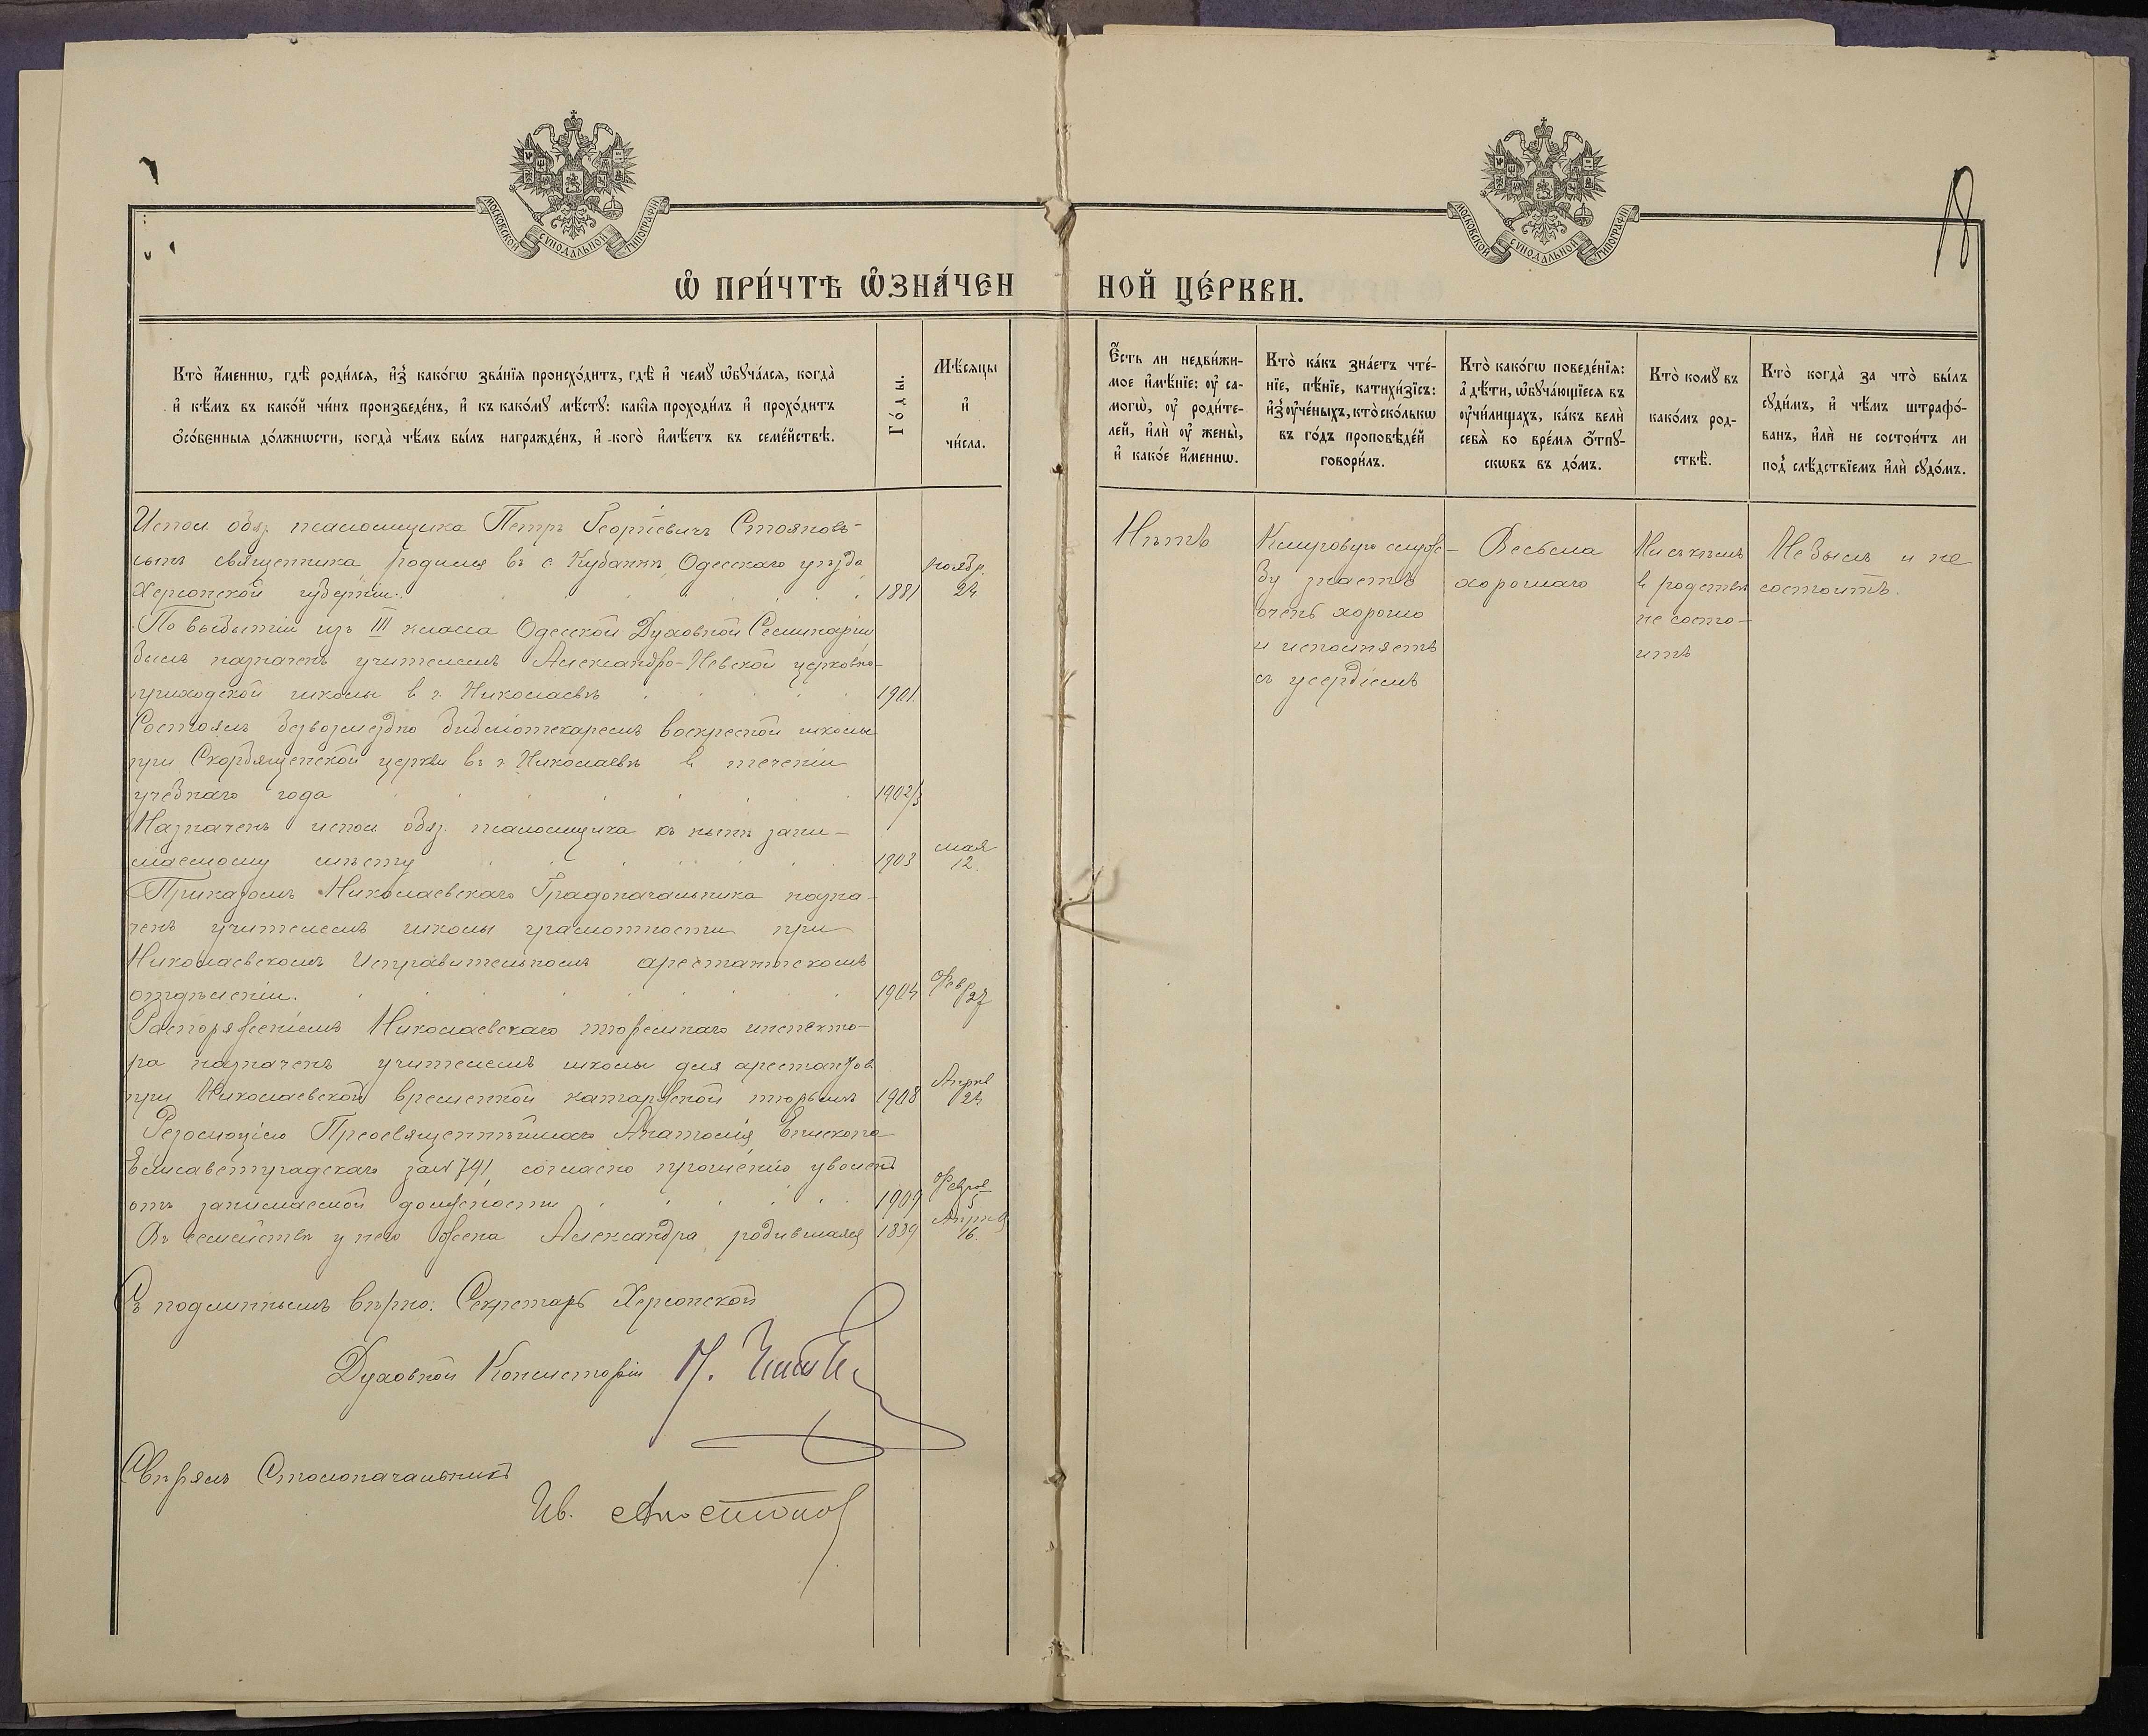 МОСКОВСКОЙ СѴНОДАЛЬНОЙ ТИПОГРАФІИ
МОСКОВСКОЙ СѴНОДАЛЬНОЙ ТИПОГРАФІИ
18
Ѡ҆ ПРИ́ЧТѢ Ѡ҆ЗНА́ЧЕН НОЙ ЦЕ́РКВИ.
Кто̀ и҆́меннѡ, гдѣ̀ роди́лся, и҆з̾ како́гѡ зва́нїѧ происхо́дитъ, гдѣ̀ и҆ чемꙋ̀ ѡ҆бꙋча́лся, когда̀
и҆ кѣ́мъ въ како́й чи́нъ произведе́нъ, и҆ къ како́мꙋ мѣ́стꙋ: какі̑ѧ проходи́лъ и҆ прохо́дитъ
ѻ҆со́бенныѧ до́лжнѡсти, когда̀ чѣ́мъ бы́лъ награжде́нъ, и҆ кого̀ и҆мѣ́етъ въ семе́йствѣ.
Го́ды.
Мѣ́сѧцы
и҆
чи́сла.
Е҆́сть ли недви́жи-
мое и҆мѣ́нїе: оу҆ са-
могѡ̀, оу҆ роди́те-
лей, и҆лѝ оу҆ жены̀,
и҆ како́е и҆́меннѡ.
Кто̀ ка́къ зна́етъ чте́-
нїе, пѣ́нїе, катихи́зїсъ:
и҆з̾ оу҆че́ныхъ, кто̀ ско́лькѡ
въ го́дъ проповѣ́дей
говори́лъ.
Кто̀ како́гѡ поведе́нїѧ:
а҆ дѣ́ти, ѡ҆бꙋча́ющїесѧ въ
оу҆чи́лищахъ, ка́къ велѝ
себѧ̀ во вре́мѧ ѻ҆́тпꙋ-
скѡвъ въ до́мъ.
Кто̀ комꙋ̀ въ
како́мъ род-
ствѣ̀.
Кто̀ когда̀ за что̀ бы́лъ
сꙋди́мъ, и҆ чѣ́мъ штрафо́-
ванъ, и҆лѝ не состои́тъ ли
под̾ слѣ́дствїемъ и҆лѝ сꙋдо́мъ.
Испол. обяз. псаломщика Петръ Георгіевичъ Стояновъ-
сынъ священника, родился въ с. Кубанкѣ, Одесскаго уѣзда
Херсонской губерніи. 1881 ноябр. 24
По выбытіи изъ III класса Одесской Духовной Семинаріи
былъ назначенъ учителемъ Александро-Невской церковно-
приходской школы въ г. Николаевѣ 1901.
Состоялъ безвозмездно библіотекаремъ воскресной школы
при Скорбященской церкви въ г. Николаевѣ въ теченіи
учебнаго года 1902/3
Назначенъ испол. обяз. псаломщика къ нынѣ зани-
маемому мѣсту 1903 мая 12.
Приказомъ Николаевскаго Градоначальника назна-
ченъ учителемъ школы грамотности при
Николаевскомъ Исправительномъ арестантскомъ
отдѣленіи. 1904 Февр 27
Распоряженіемъ Николаевскаго тюремнаго инспекто-
ра назначенъ учителемъ школы для арестантовъ
при Николаевской временной каторжной тюрьмѣ 1908 Апрѣл 24
Резолюціею Преосвященнѣйшаго Анатолія Епископа
Елисаветградскаго за № 741, согласно прошенію уволенъ
отъ занимаемой должности 1909 Феврал 5
Въ семействѣ у него жена Александра, родившаяся 1889 Апрѣля 16.
Нѣтъ
Клировую служ-
бу знаетъ
очень хорошо
и исполняетъ
съ усердіемъ
Весьма
хорошаго
Ни съ кѣмъ
въ родствѣ
не состо-
итъ
Не былъ и не
состоитъ.
Съ подлиннымъ вѣрно: Секретарь Херсонской
Духовной Консисторіи
Свѣрялъ Столоначальникъ
Ив.